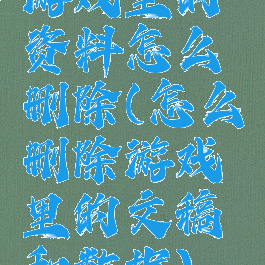 游戏里的
资料怎么
删除(怎么
删除游戏
里的文稿
和数据)